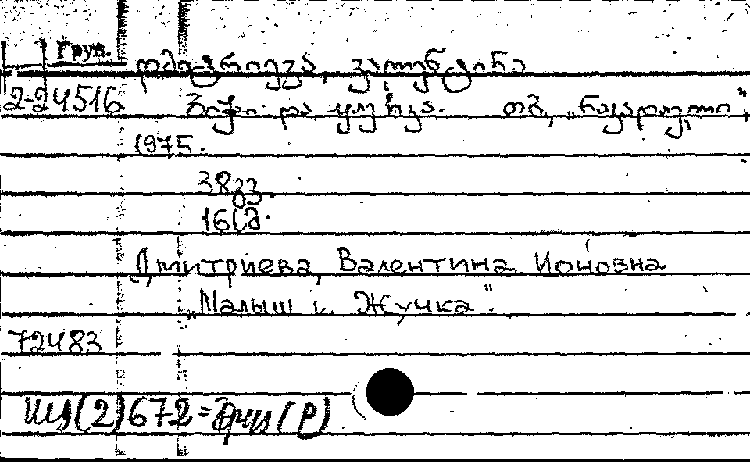 Груз.
დმიტრიევა, ვალენტინა
2-24516 ბიჭი და ყურშა. თბ., „ნაკადული",
1975.
38 გვ.
16 სმ.
Дмитриева, Валентина Ионовна
„Малыш и Жучка".
72483
(2)672=